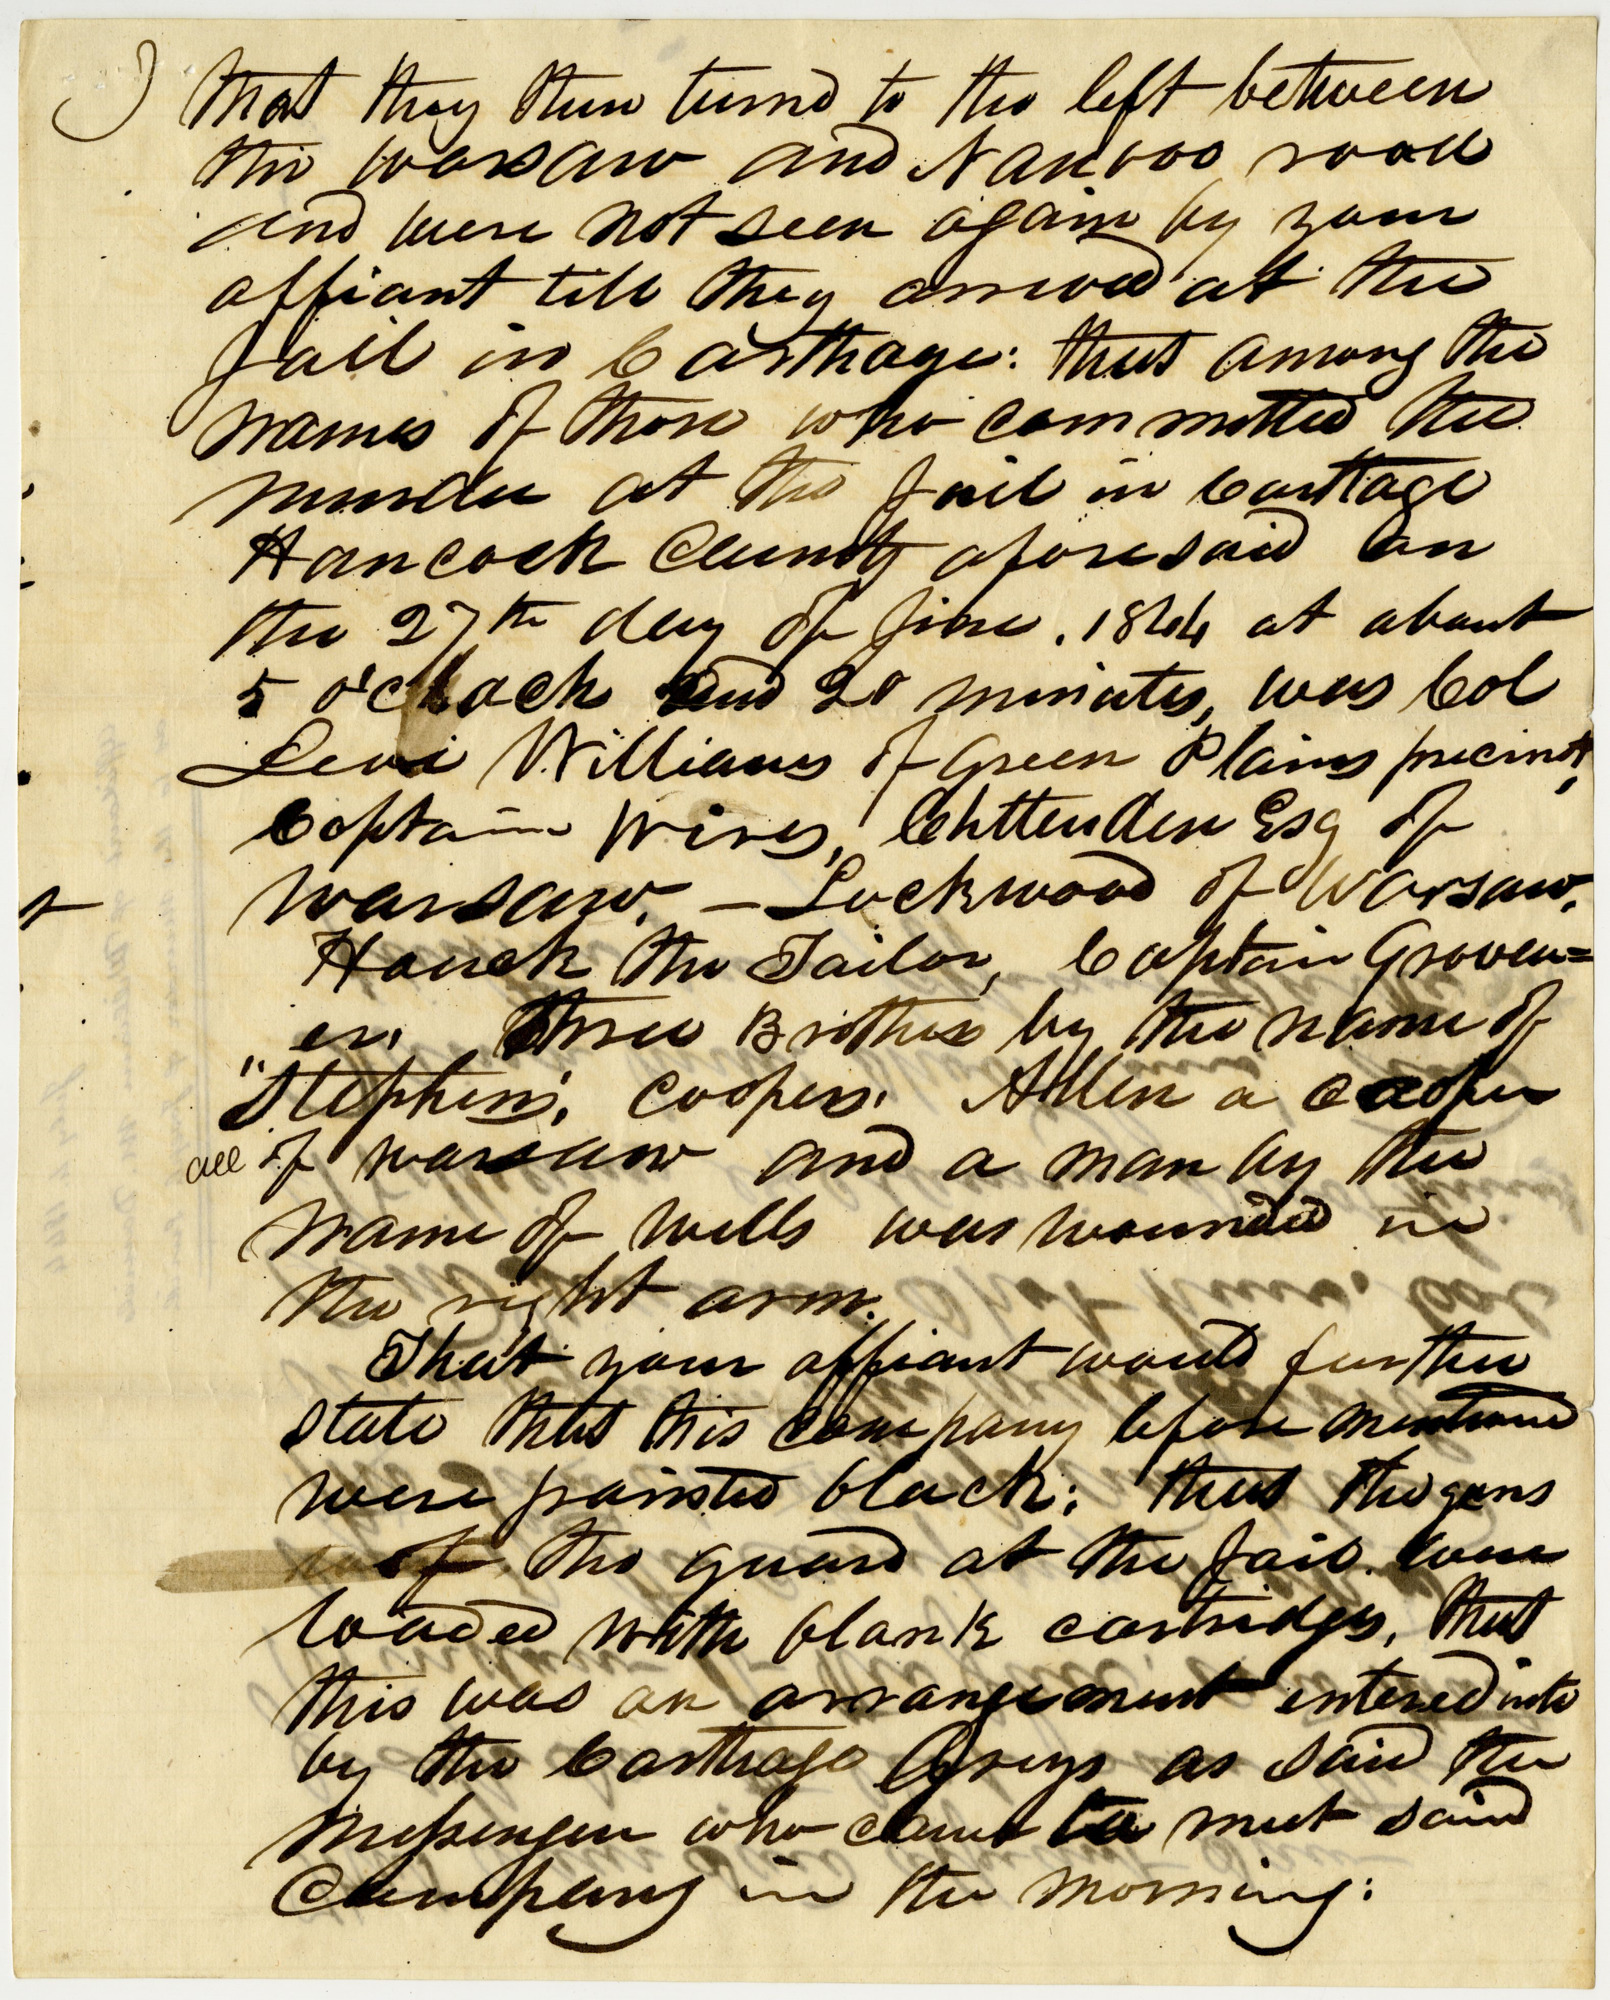 that they then turnd to the left between
the warsaw and Nauvoo road
and were not seen again by your
affiant till they arrived at the
Jail in Carthage: that among the
names of those who committed the
murder at the Jail in Carthage
Hancock County aforesaid on
the 27th day of June, 1844 at about
5 o'clock and 20 minutes, was Col
Levi Williams of Green Plains precinct,
Captain Wires, Chittenden Esq of
warsaw. — Lockwood of Warsaw.
Houck the Tailor, Captain Groven=
er, Three Brothers by the name of
"Stephens, coopers. Allen a cooper
all of warsaw and a man by the
name of Wells was wounded in
the right arm.
That your affiant would further
state that this company before mentioned
were painted black; that the guns
of the guard at the Jail. were
loaded with blank cartridges, that
this was an arrangement entered into
by the Carthage Greys as said the
messenger who came to meet said
Company in the morning: